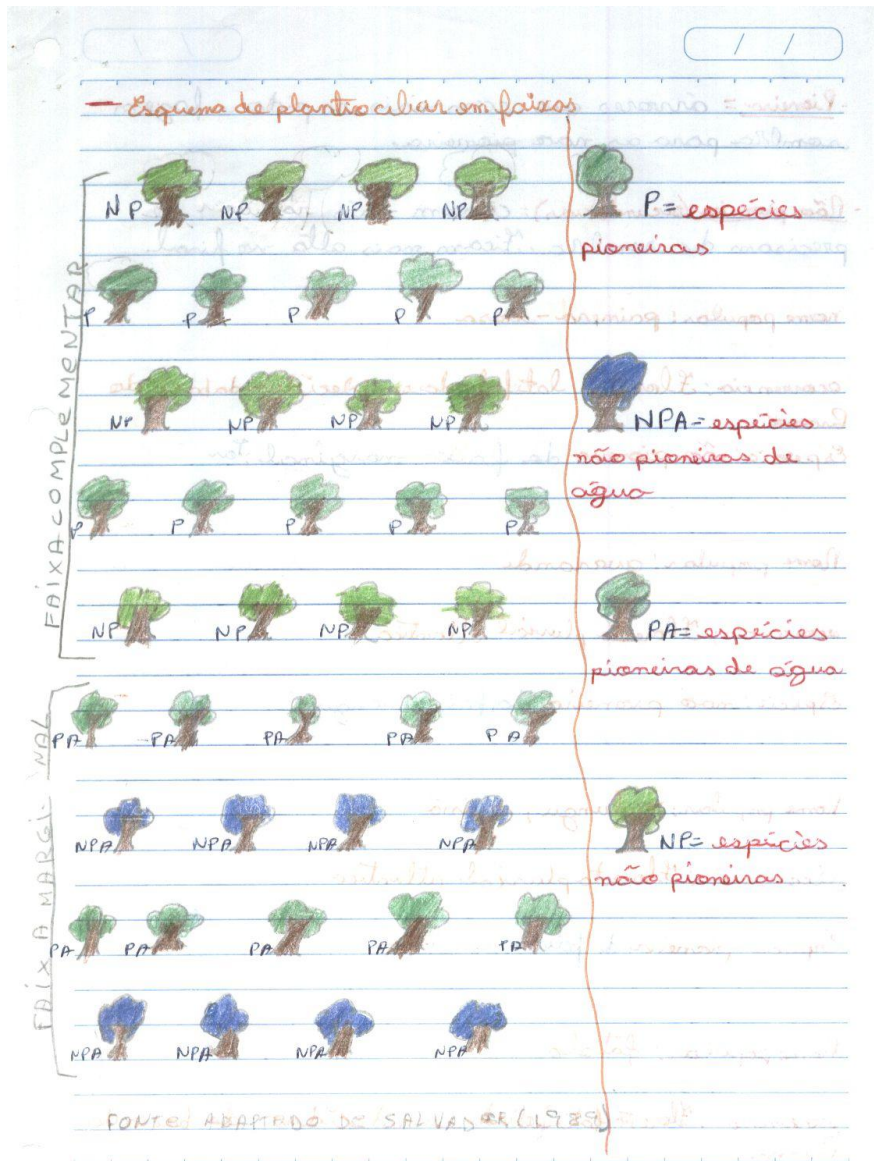 — Esquema de plantio ciliar em faixas
FAIXA COMPLEMONTAR
NP NP NP NP
P P P P P
NP NP NP NP
P P P P P
NP NP NP NP
FAIXA MARGI-NAL
PA PA PA PA PA
NPA NPA NPA NPA
PA PA PA PA PA
NPA NPA NPA NPA
P = espécies
pioneiras
NPA = espécies
não pioneiras de
água
PA = espécies
pioneiras de água
NP = espécies
não pioneiras
FONTE ADAPTADO DE SALVADOR (1989)